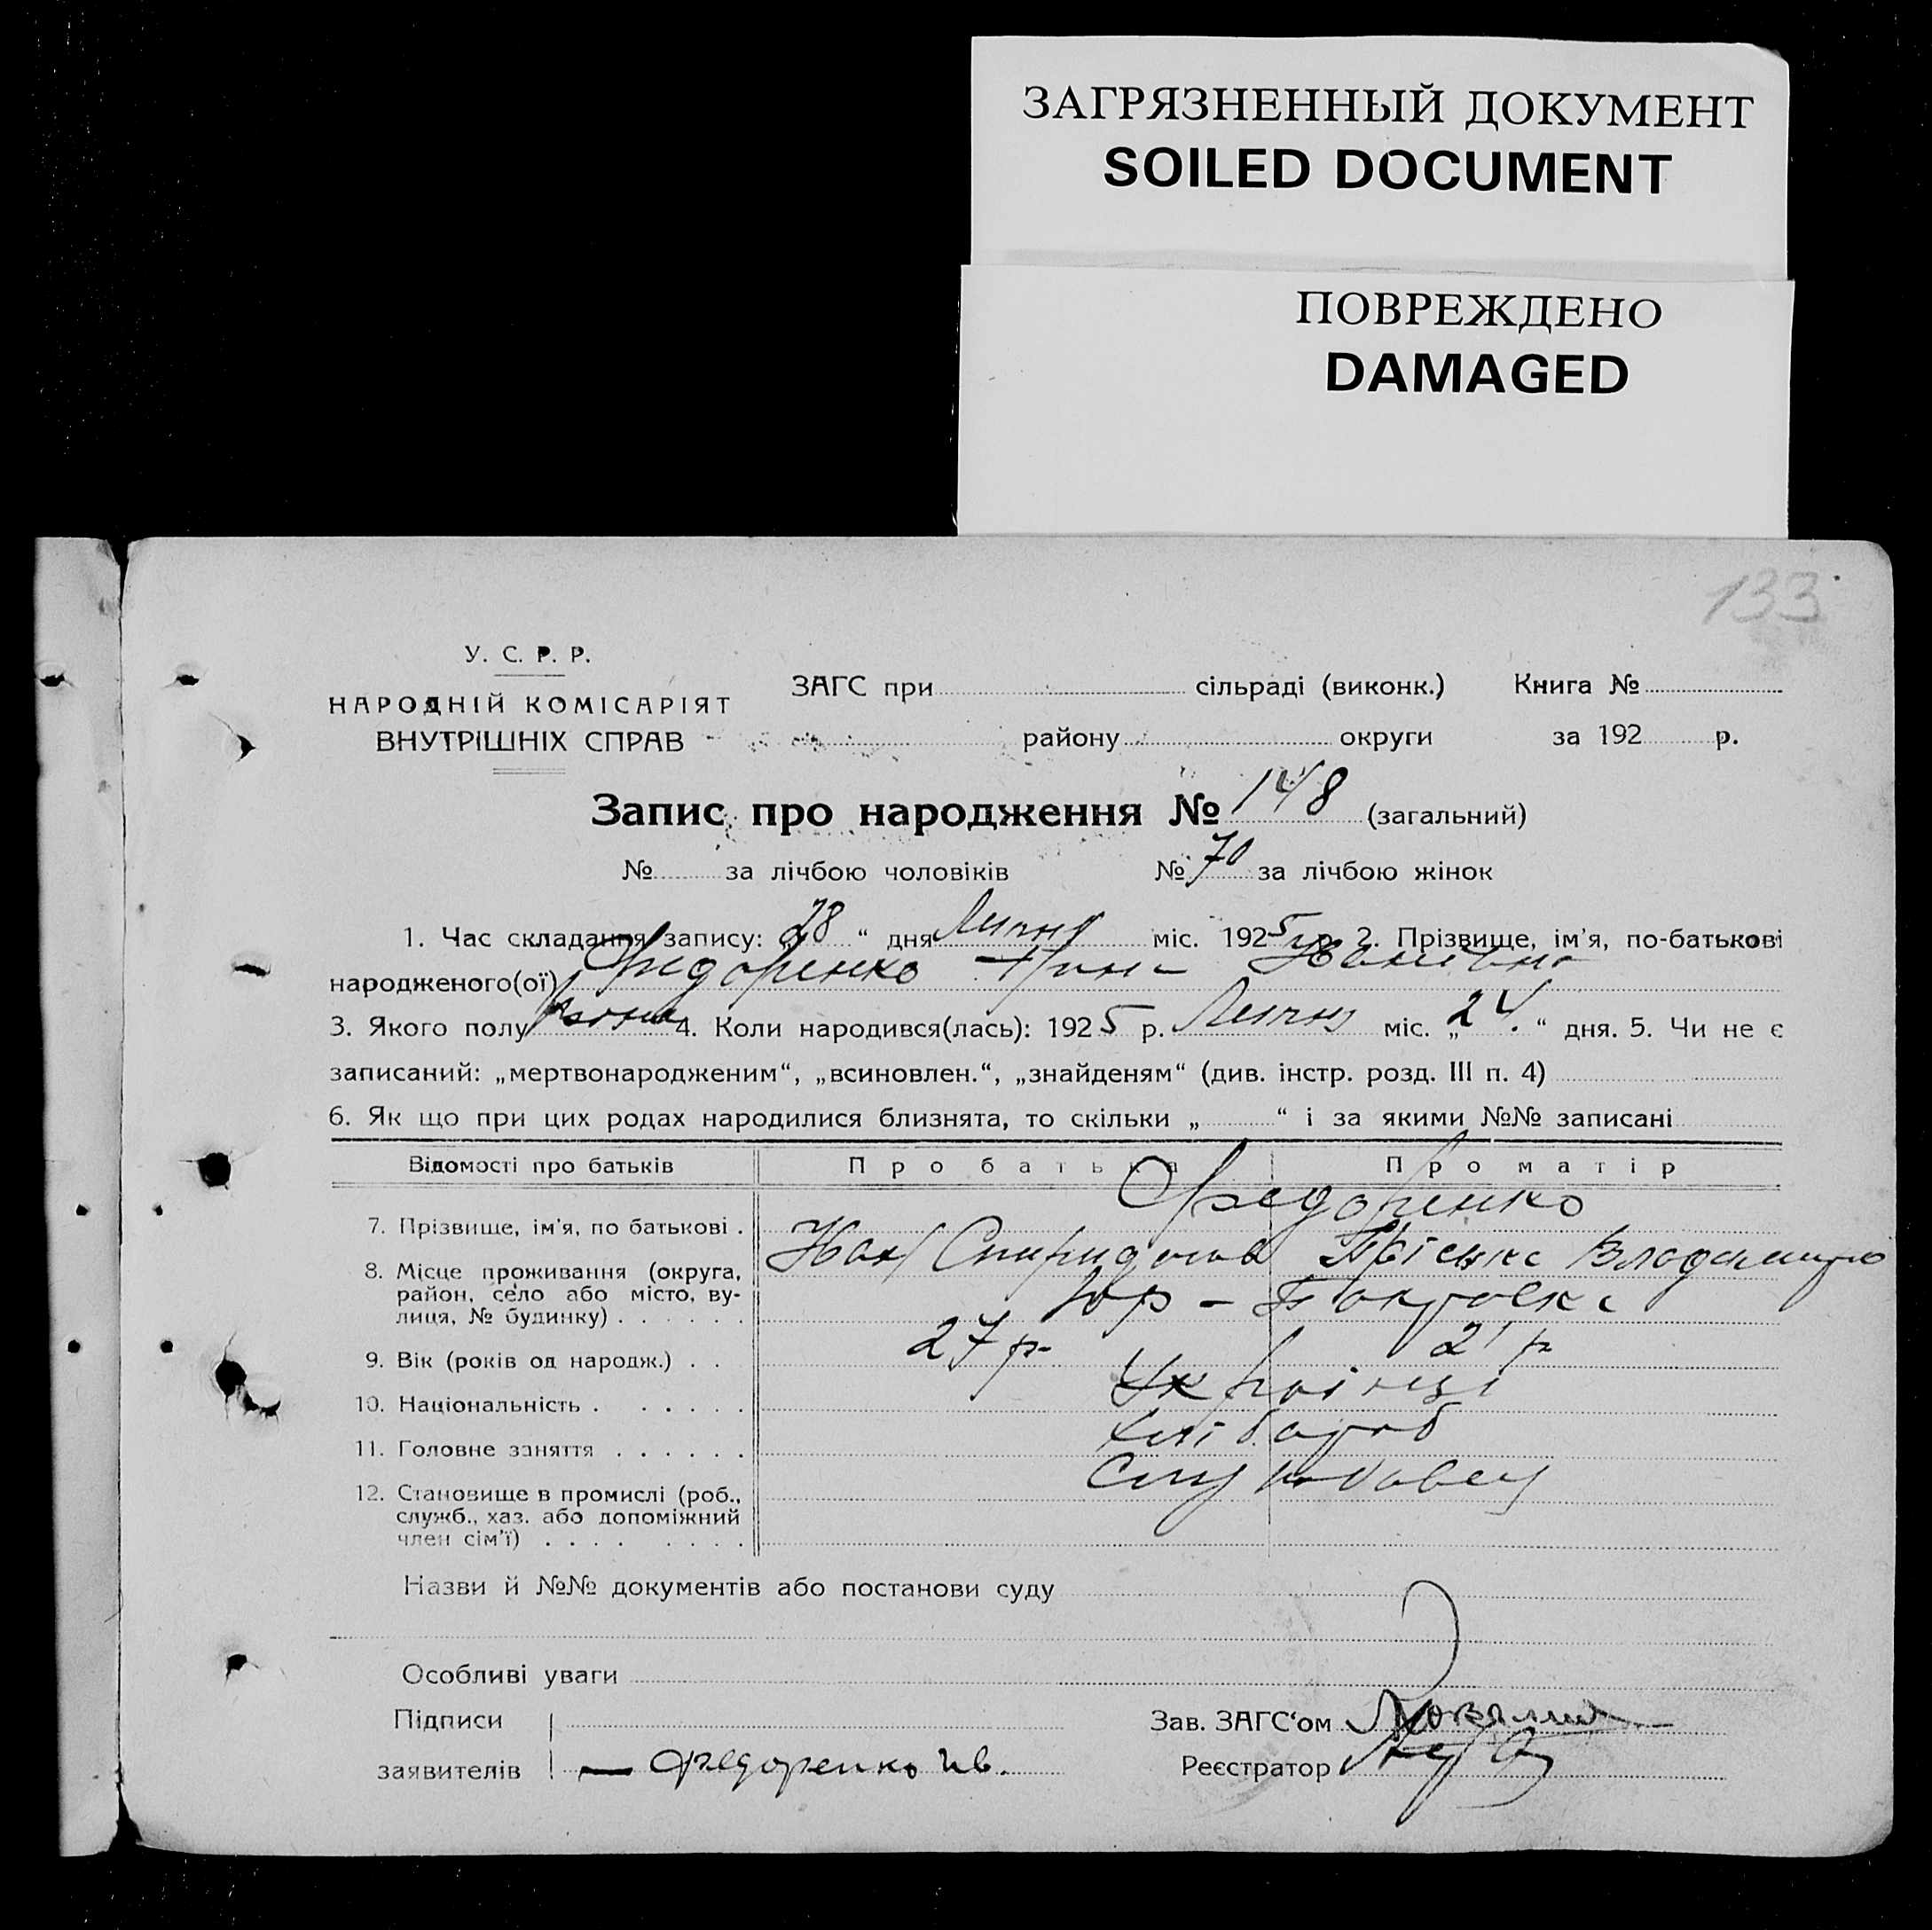 ЗАГРЯЗНЕННЫЙ ДОКУМЕНТ
SOILED DOCUMENT
ПОВРЕЖДЕНО
DAMAGED
133
У. С. Р. Р.
НАРОДНІЙ КОМІСАРІЯТ
ВНУТРІШНІХ СПРАВ
ЗАГС при сільраді (виконк.) Книга №
району округи за 192 р.
Запис про народження № 148 (загальний)
№ за лічбою чоловіків № 70 за лічбою жінок
1. Час складання запису: „28“ дня Липня міс. 1925 р. 2. Прізвище, ім'я, по-батькові
народженого(ої) Федоренко Нина Ивановна
3. Якого полу 4. Коли народився(лась): 1925 р. Липня міс. „24.“ дня. 5. Чи не є
записаний: „мертвонародженим“, „всиновлен.“, „знайденям“ (див. інстр. розд. III п. 4)
6. Як що при цих родах народилися близнята, то скільки „ “ і за якими №№ записані
Відомості про батьків Про батька Про матір
Федоренко
7. Прізвище, ім'я, по батькові . Иван Спиридонов
8. Місце проживання (округа,
район, село або місто, ву-
лиця, № будинку) . . . . . . Юр - Покровка
9. Вік (років од народж.) . . 27 р. 21 р
10. Національність . . . . . . Українці
11. Головне заняття . . . . . . хлібороб
12. Становище в промислі (роб.,
служб., хаз. або допоміжний
член сім'ї) . . . . . . . .
Назви й №№ документів або постанови суду
Особливі уваги
Підписи
заявителів — Федоренко Ив.
Зав. ЗАГС‘ом
Реєстратор